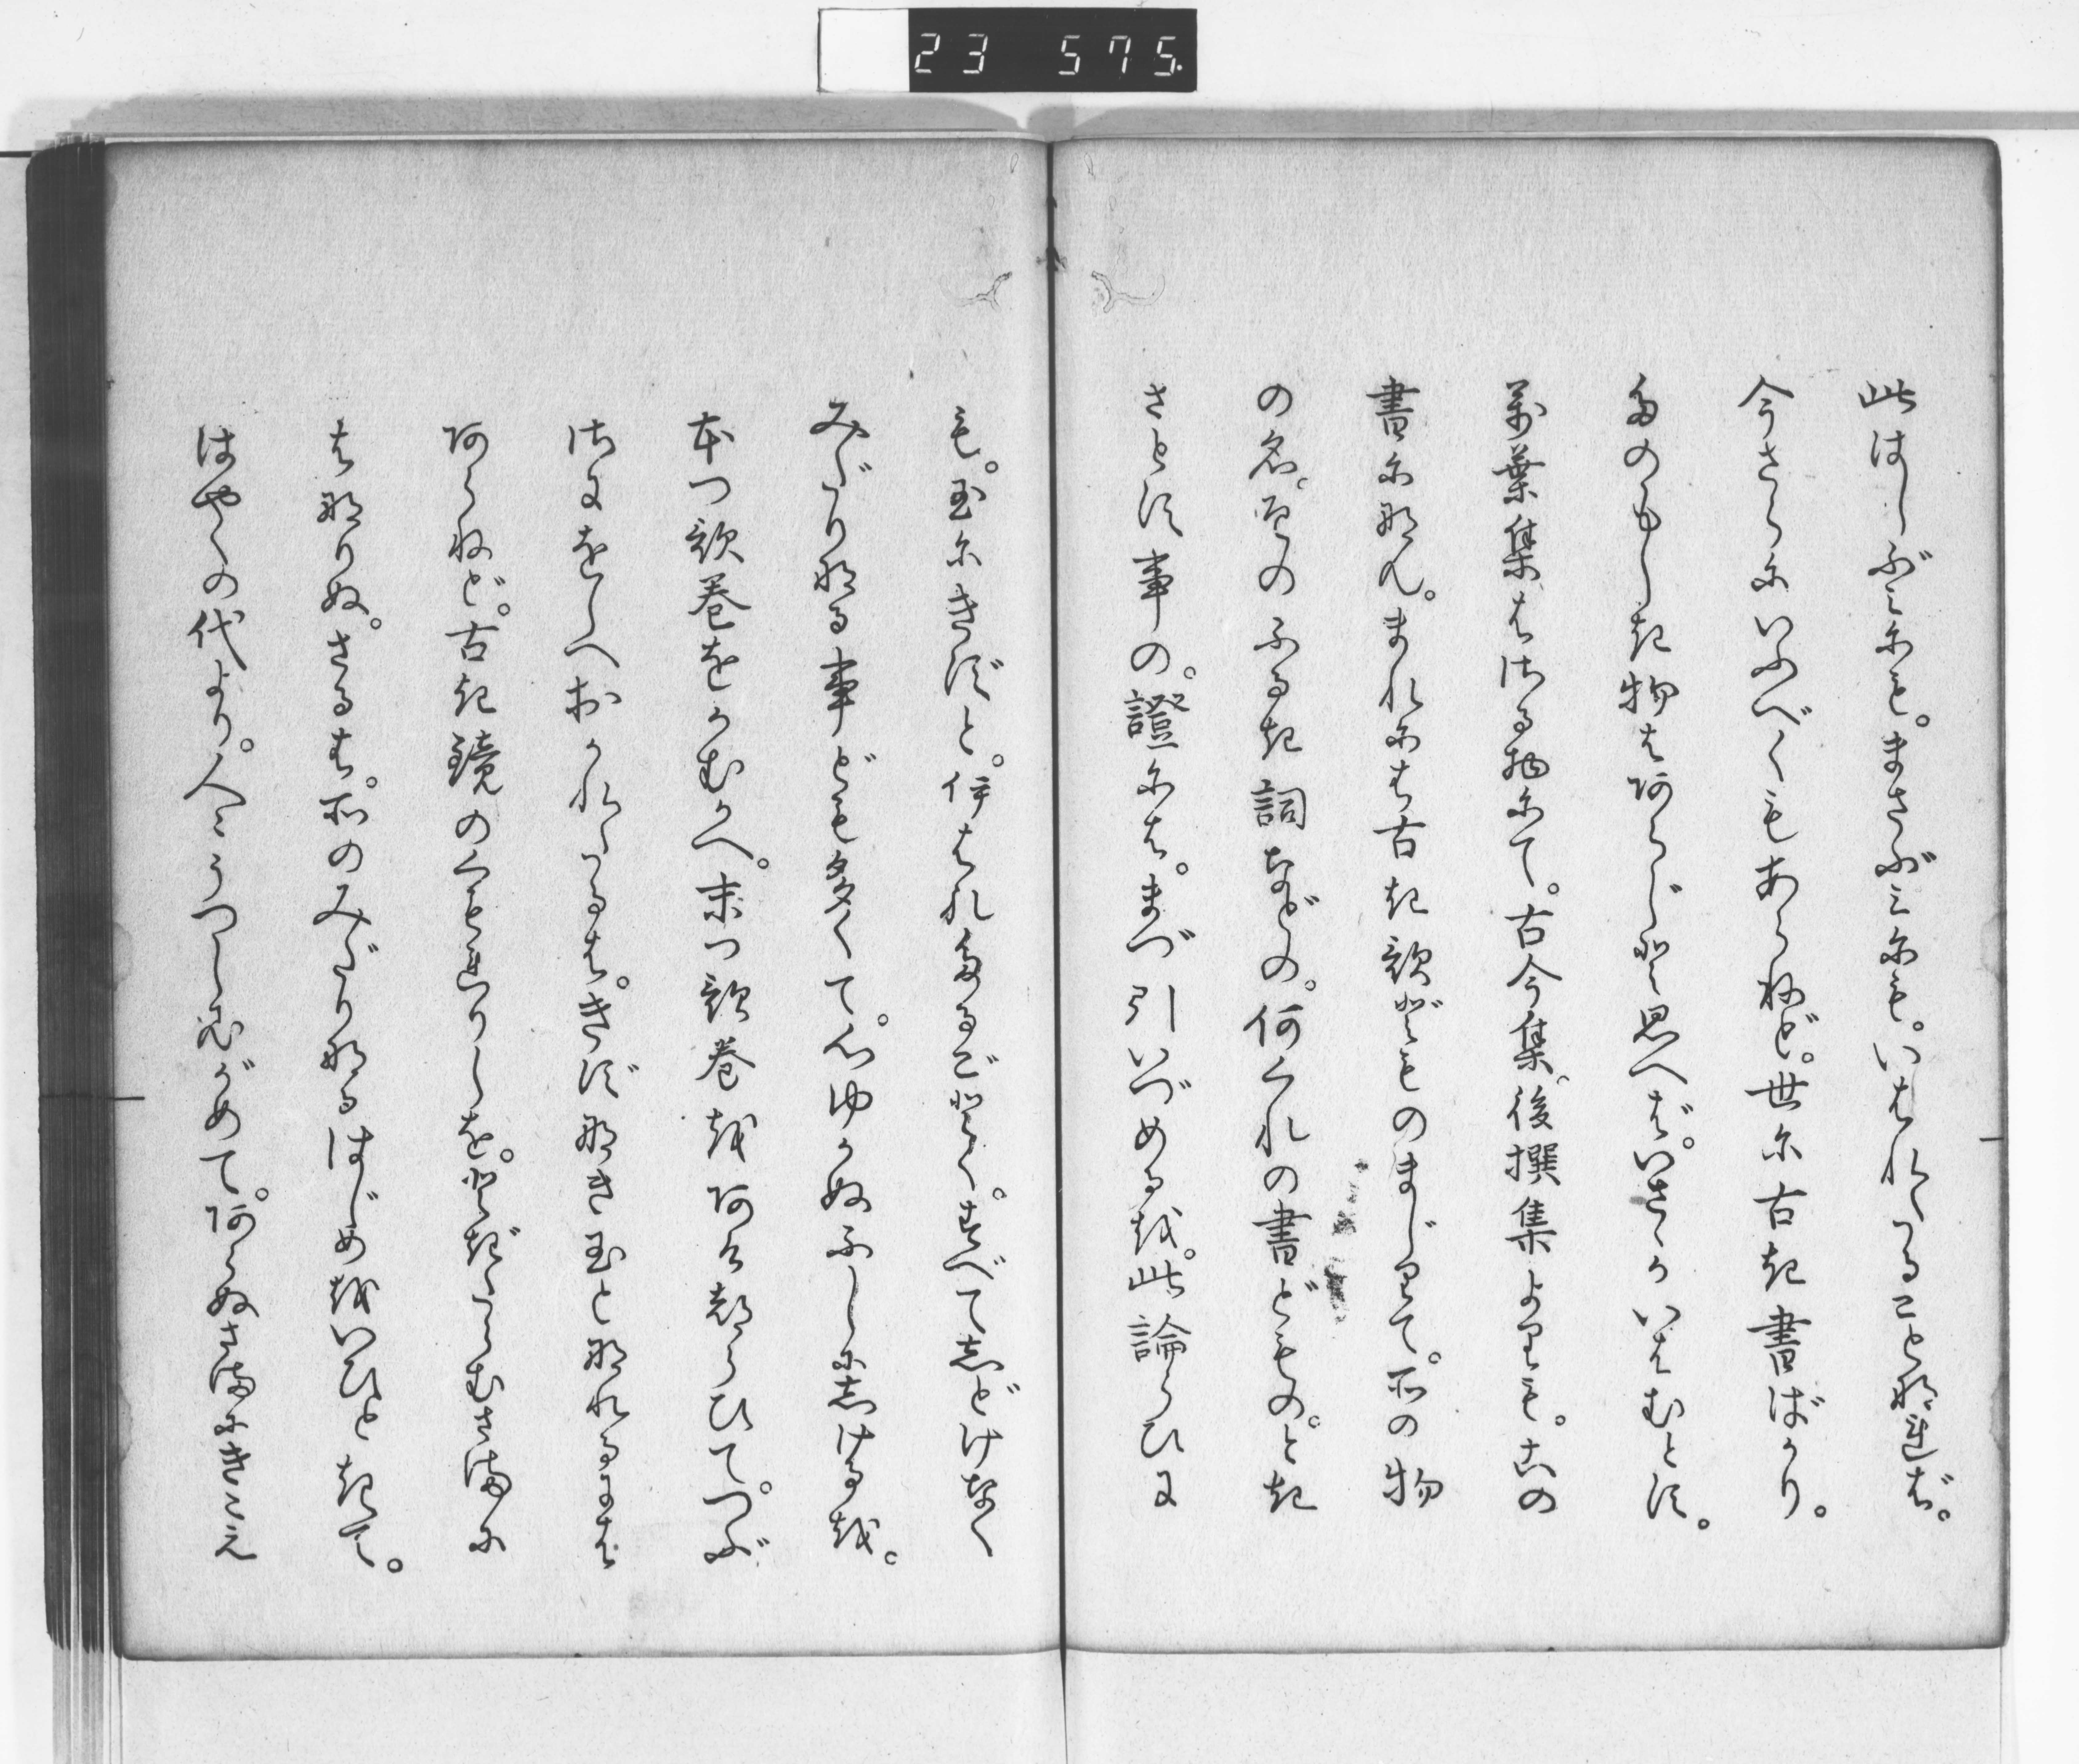 23 575.
此はしぶミにも。まさぶミにも。いはれたることなれば。
今さらにいふべくもあらねど。世に古き書ばかり。
たのもしき物はあらじと思へば。いさゝかいはむとす。
萬葉集はさる物にて。古今集、後撰集よりも。この
書になん。まれには古き歌どものまじりて。その物
の名、里のふるき詞などの。何くれの書どもの。とき
さとす事の。證には。まづ引いづめるを。此論らひに
も。玉にきずと。いはれたるごとく。すべてしどけなく
みだり なる事ども多くて。心ゆかぬふしにしけるを。
本つ歌巻をかむかへ。末つ歌巻をあげつらひて。つぶ
さにをしへおかれたるは。きずなき玉となれるには
あらねど。古き鏡のくもれりしを。とぎたらむさまに
はなりぬ。さるは。そのみだりなるはじめをいひときて。
はやくの代より。人々うつしひがめて。あらぬさまにきこえ